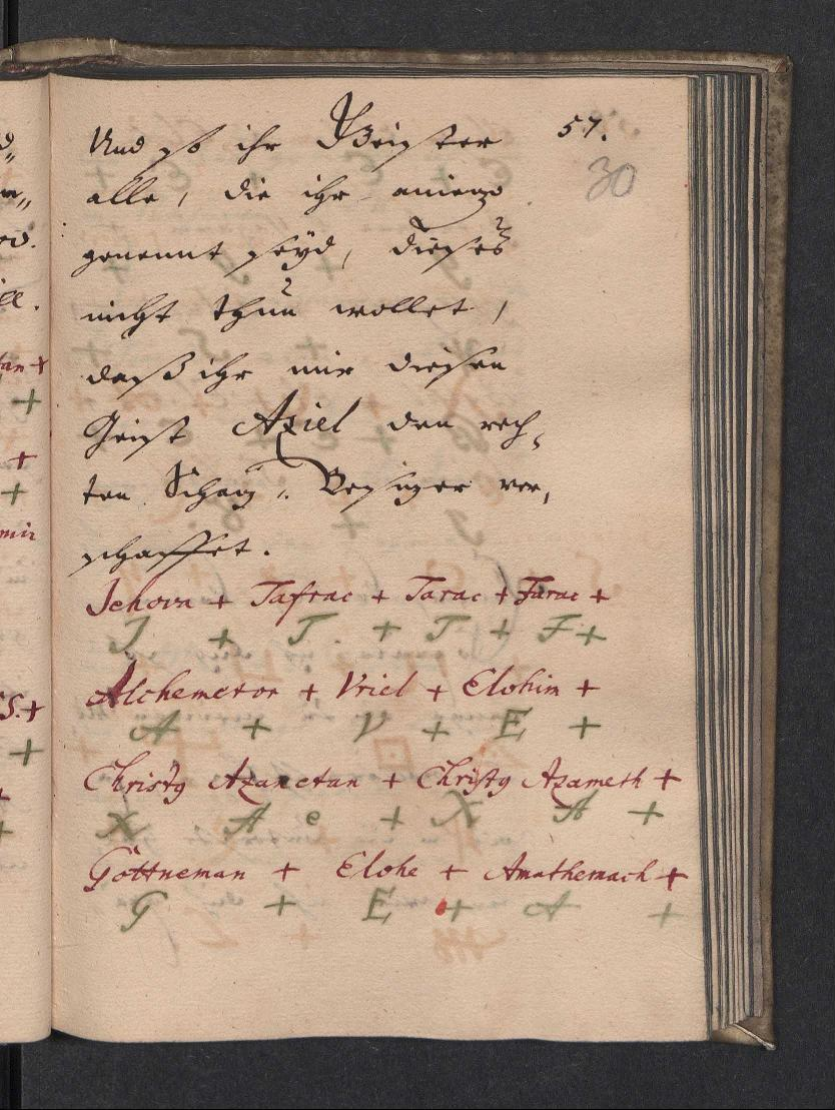 57.
Und so ihr Geister
30
alle, die ihr aniezo
genennt seÿd, dieses
nicht thun wollet,
daß ihr mir diesen
Geist Aziel den rech,
ten Schaz. Besizer ver,
schaffet.
Jehova + Tafrac + Tarac + Farac +
J + T + T + F +
Alchemeror + Vriel + Elohim +
A + V + E +
Christy Azanetan + Christy Azameth +
X A e + X A +
Gottneman + Elohe + Amathemach +
G + E + A +
tan +
+
+
+
mir
S. +
+